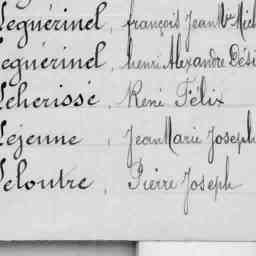 Leguérinel, françois Jean Mie Mich
Leguérinel, henri Alexandre Dési
Léhérissé, René Félix
Lejeune, Jean Marie Joseph
Leloutre, Pierre Joseph